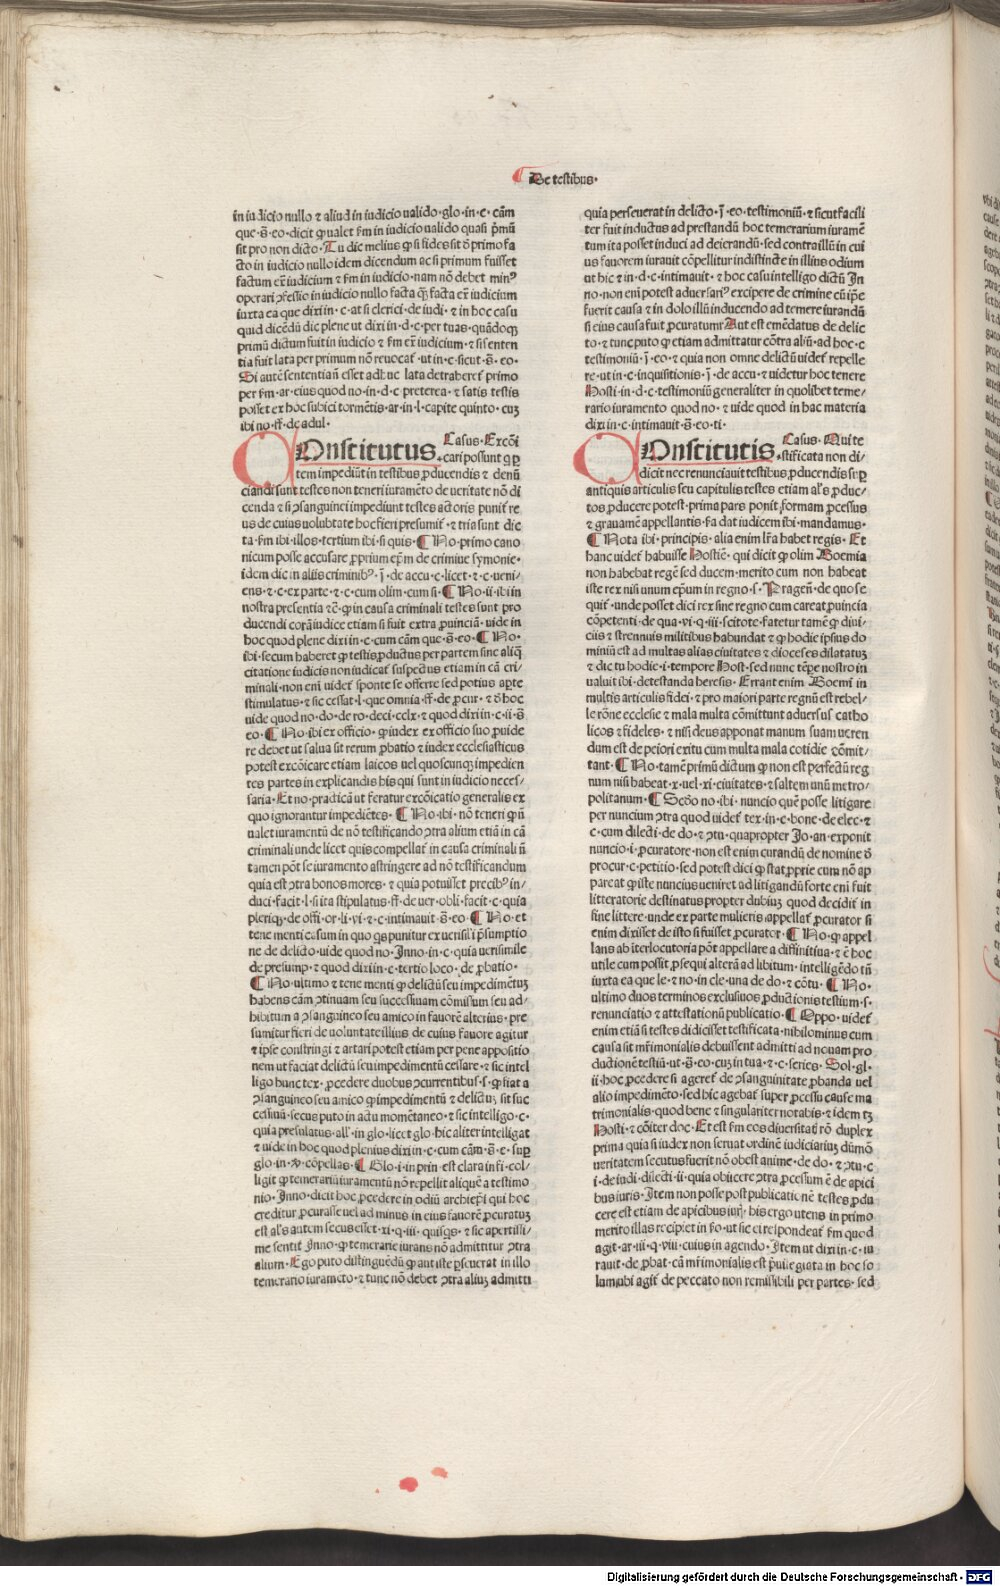 De testibus·
in iudicio nullo ⁊ aliud in iudicio ualido·glo·in·c·cām
que·s̄·eo·dicit ꝙ ualet s̄m in iudicio ualido quasi p̄mū
sit pro non dicto·Tu dic melius ꝙ si fides sit ō primo fa
cto in iudicio nullo idem dicendum ac si primum fuisset
factum eēt iudicium ⁊ s̄m in iudicio·nam nō debet minꝰ
operari ꝯfessio in iudicio nullo facta q̄ꝫ facta eēt iudicium
iuxta ea que dixi in·c·at si clerici·de iudi·⁊ in hoc casu
quid dicēdū dic plene ut dixi in·d·c·per tuas·quādoqꝫ
primū dictum fuit in iudicio ⁊ s̄m eēt iudicium·⁊ si senten
tia fuit lata per primum nō reuocat᷑·ut in·c·sicut·s̄·eo·
Si autē sententia nō esset adhuc lata detraheret᷑ primo
per s̄m·ar·eius quod no·in·d·c·preterea·⁊ satis testis
posset ex hoc subici tormētis·ar·in·l·capite quinto·cuꝫ
ibi no·ff·de adul·
COnstitutus Casus·Excōi
cari possunt q̄ ꝑ
tem impediūt in testibus ꝓducendis ⁊ denū
ciandi sunt testes non teneri iuramēto de ueritate nō di
cenda ⁊ si ꝯsanguinei impediunt testes actoris punit᷑ re
us de cuius uolūtate hoc fieri presumit᷑·⁊ tria sunt dic
ta·s̄m ibi·illos·tertium ibi·si quis·¶ No·primo cano
nicum posse accusare ꝓprium ep̄m de crimine symonie·
idem dic in aliis criminibꝰ·j̄·de accu·c·licet·⁊·c·ueni/
ens·⁊·c·ex parte·⁊·c·cum olim·cum si·¶ No·ii·ibi in
nostra presentia ⁊c̄·ꝙ in causa criminali testes sunt pro
ducendi corā iudice etiam si fuit extra ꝓuinciā·uide in
hoc quod plene dixi in·c·cum cām que·s̄·eo·¶ No·
ibi·secum haberet ꝙ testis ꝓductus per partem sine aliq̄
citatione iudicis non iudicat᷑ suspectus etiam in cā cri/
minali·non eni uidet᷑ sponte se offerre sed potius aꝑte
stimulatus·⁊ sic cessat·l·que omnia·ff·de ꝓcur·⁊ ō hoc
uide quod no·do·de ro·deci·cclx·⁊ quod dixi in·c·ii·s̄
eo·¶ No·ibi ex officio·ꝙ iudex ex officio suo ꝓuide
re debet ut salua sit rerum ꝓbatio ⁊ iudex ecclesiasticus
potest excōicare etiam laicos uel quoscunqꝫ impedien
tes partes in explicandis his qui sunt in iudicio neces/
saria·Et no·practicā ut feratur excōicatio generalis ex
quo ignorantur impediētes·¶ No·ibi·nō teneri ꝙ nō
ualet iuramentū de nō testificando ꝯtra alium etiā in cā
criminali unde licet quis compellat᷑ in causa criminali n̄
tamen pōt se iuramento astringere ad nō testificandum
quia est ꝯtra bonos mores·⁊ quia potuisset precibꝰ in/
duci·facit·l·si ita stipulatus·ff·de uer·obli·facit·c·quia
pleriqꝫ·de offi·or·li·vi·⁊·c·intimauit·s̄·eo·¶ No·et
tene menti casum in quo q̄s punitur ex uerisiĺi p̄sumptio
ne de delicto·uide quod no·Inno·in·c·quia uerisimile
de presump·⁊ quod dixi in·c·tertio loco·de ꝓbatio·
¶ No·ultimo ⁊ tene menti ꝙ delictū seu impedimētuꝫ
habens cām ꝯtinuam seu successiuam cōmissum seu ad/
hibitum a ꝯsanguineo seu amico in fauorē alterius·pre
sumitur fieri de uoluntate illius de cuius fauore agitur
⁊ ipse constringi ⁊ artari potest etiam per pene appositio
nem ut faciat delictū seu impedimentū cessare·⁊ sic intel
ligo hunc tex·ꝓcedere duobus ꝯcurrentibus·s·ꝙ fiat a
ꝯsanguineo seu amico ꝙ impedimentū ⁊ delictuꝫ sit suc
cessiuū·secus puto in actu momētaneo·⁊ sic intelligo·c·
quia presulatus·all᷑·in glo·licet glo·hic aliter intelligat
⁊ uide in hoc quod plenius dixi in·c·cum cām·s̄·c·suꝑ
glo·in·ꝟ·cōpellas·¶ Glo·i·in prin·est clara in fi·col·/
ligit ꝙ temerariū iuramentū nō repellit aliquē a testimo
nio·Inno·dicit hoc ꝓcedere in odiū archiep̄i qui hoc
creditur ꝓcurasse uel ad minus in eius fauorē ꝓcuratuꝫ
est al᷑s autem secus esset·xi·q·iii·quisq̄s·⁊ sic apertissi/
me sentit Inno·ꝙ temerarie iurans nō admittitur ꝯtra
alium·Ego puto distinguēdū ꝙ aut iste ꝑseuerat in illo
temerario iuramēto·⁊ tunc nō debet ꝯtra aliuꝫ admitti
quia perseuerat in delicto·j̄·eo·testimoniū·⁊ sicut facili
ter fuit inductus ad prestandū hoc temerarium iuramē
tum ita posset induci ad deierandū·sed contra illū in cui
us fauorem iurauit cōpellitur indistincte in illius odium
ut hic ⁊ in·d·c·intimauit·⁊ hoc casu intelligo dictū In
no·non eni potest aduersariꝰ excipere de crimine cū ip̄e
fuerit causa ⁊ in dolo illū inducendo ad temere iurandū
si eius causa fuit ꝓcuratum Aut est emēdatus de delic
to·⁊ tunc puto ꝙ etiam admittatur cōtra aliū·ad hoc·c
testimoniū·j̄·eo·⁊ quia non omne delictū uidet᷑ repelle
re·ut in·c·inquisitionis·j̄·de accu·⁊ uidetur hoc tenere
Hosti·in·d·c·testimoniū generaliter in quolibet teme/
rario iuramento quod no·⁊ uide quod in hac materia
dixi in·c·intimauit·s̄·eo·ti·
COnstitutis Casus·Qui te
stificata non di/
dicit nec renunciauit testibus ꝓducendis suꝑ
antiquis articulis seu capitulis testes etiam al᷑s ꝓduc/
tos ꝓducere potest·prima pars ponit formam ꝓcessus
⁊ grauamē appellantis·s̄a dat iudicem ibi·mandamus·
¶ Nota ibi·principis·alia enim lr̄a habet regis·Et
hanc uidet᷑ habuisse Hostiē·qui dicit ꝙ olim Boemia
non habebat regē sed ducem·merito cum non habeat
iste rex nisi unum ep̄um in regno·s·Pragen̄·de quo se
quit᷑·unde posset dici rex sine regno cum careat ꝓuincia
cōpetenti·de qua·vi·q·iii·scitote·fatetur tamē ꝙ diui/
ciis ⁊ strennuis militibus habundat ⁊ ꝙ hodie ipsus do
miniū est ad multas alias ciuitates ⁊ dioceses dilatatuꝫ
⁊ dic tu hodie·i·tempore Host·sed nunc tēꝑe nostro in
ualuit ibi·detestanda heresis·Errant enim Boemi in
multis articulis fidei·⁊ pro maiori parte regnū est rebel/
le rōne ecclesie ⁊ mala multa cōmittunt aduersus catho
licos ⁊ fideles·⁊ nisi deus apponat manum suam ueren
dum est de peiori exitu cum multa mala cotidie ꝯmit/
tant·¶ No·tamē primū dictum ꝙ non est perfectū reg
num nisi habeat·x·uel·xi·ciuitates·⁊ saltem unū metro/
politanum·¶ Scd̄o no·ibi·nuncio quē posse litigare
per nuncium ꝯtra quod uidet᷑ tex·in·c·bone·de elec·⁊
c·cum dilecti·de do·⁊ ꝯtu·quapropter Jo·an·exponit
nuncio·i·ꝓcuratore·non est enim curandū de nomine ō
procur·c·petitio·sed potest dici ꝙ stat ꝓprie cum nō ap
pareat ꝙ iste nuncius ueniret ad litigandū forte eni fuit
litteratorie destinatus propter dubiuꝫ quod decidit᷑ in
fine littere·unde ex parte mulieris appellat᷑ ꝓcurator si
enim dixisset de isto si fuisset ꝓcurator·¶ No·ꝙ appel
lans ab īterlocutoria pōt appellare a diffinitiua·⁊ ē hoc
utile cum possit ꝓsequi alterā ad libitum·intelligēdo tn̄
iuxta ea que le·⁊ no·in cle·una de do·⁊ cōtu·¶ No·
ultimo duos terminos exclusiuos ꝓductionis testium·s·
renunciatio ⁊ attestationū publicatio·¶ Oppo·uidet᷑
enim etiā si testes didicisset testificata·nihilominus cum
causa sit mr̄imonialis debuissent admitti ad nouam pro
ductionē testiū·ut·s̄·eo·cuꝫ in tua·⁊·c·series·Sol·gl·
ii·hoc ꝓcedere si ageret᷑ de ꝯsanguinitate ꝓbanda uel
alio impedimēto·sed hic agebat᷑ super ꝓcessu cause ma
trimonialis·quod bene ⁊ singulariter notabis·⁊ idem tꝫ
Hosti·⁊ cōiter doc·Et est s̄m eos diuersitatꝭ rō duplex
prima quia si iudex non seruat ordinē iudiciariuꝫ dūmō
ueritatem secutus fuerit nō obest anime·de do·⁊ ꝯtu·c
i·de iudi·dilecti·ii·quia obiicere ꝯtra ꝓcessum ē de apici
bus iuris·Item non posse post publicationē testes ꝓdu
cere est etiam de apicibus iur̄·his ergo utens in primo
merito illas recipiet in s̄o·ut sic ei respondeat᷑ s̄m quod
agit·ar·iii·q·viii·cuius in agendo·Item ut dixi in·c·iu
rauit·de ꝓbat·cā mr̄imonialis est p̄uilegiata in hoc so
lum ubi agit᷑ de peccato non remissibili per partes·sed
Digitalisierung gefördert durch die Deutsche Forschungsgemeinschaft - DFG